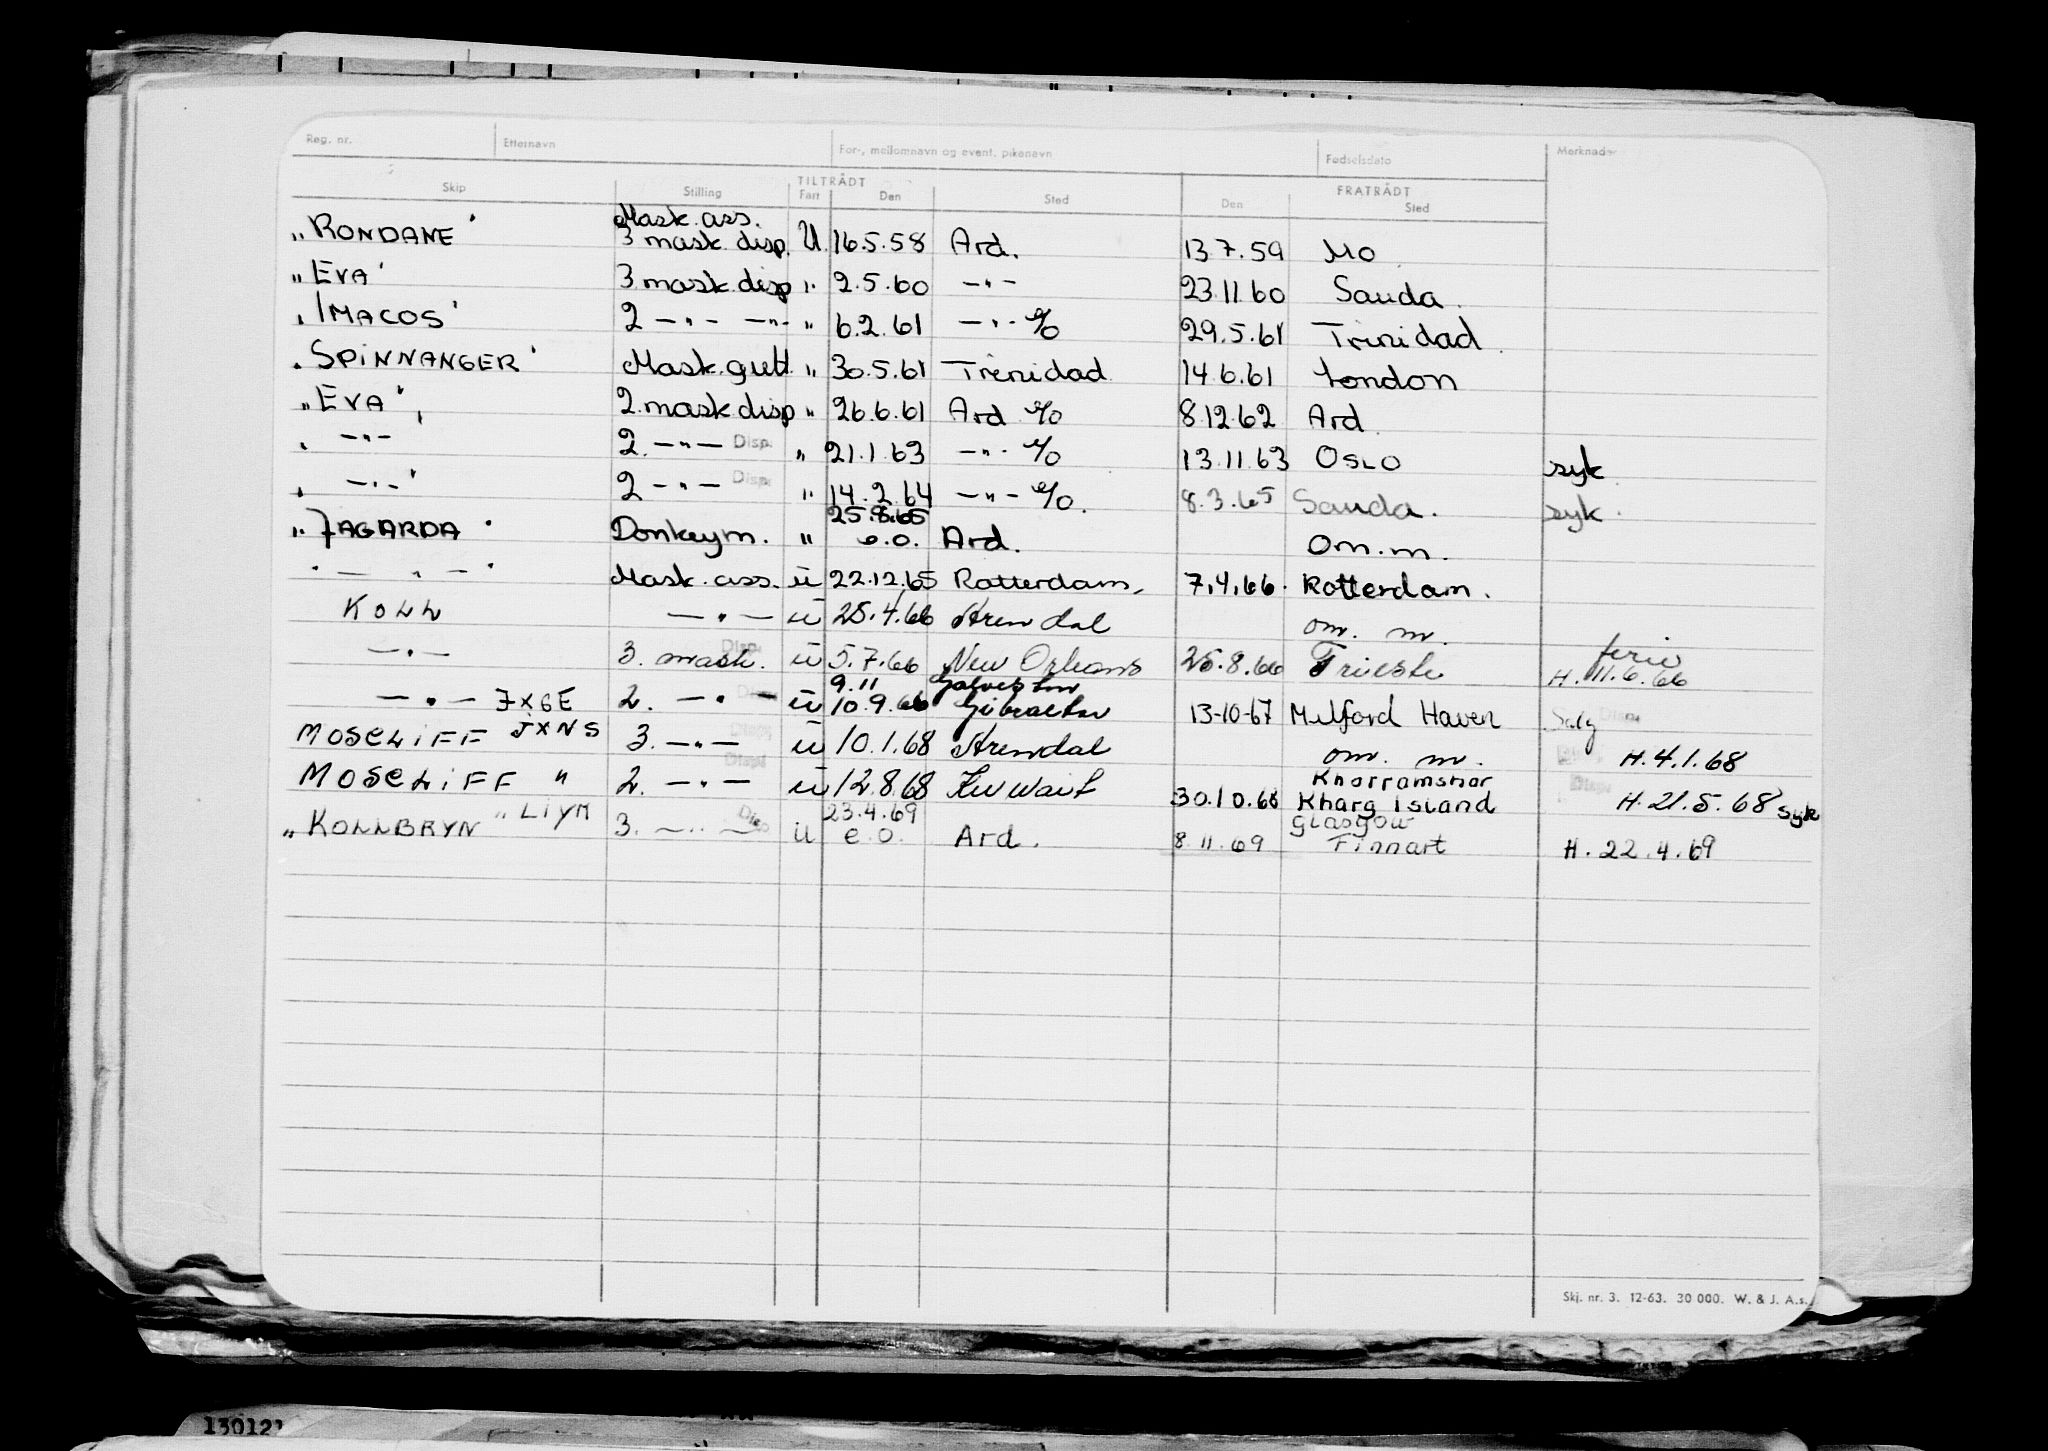 Reg. nr. Etternavn For-, mellomnavn og event. pikenavn Fødselsdato Merknader
TILTRÅDT FRATRÅDT
Skip Stilling Fart Den Sted Den Sted
Mask. ass.
"RONDANE" 3 mask. disp. U. 16.5.58 Ard. 13.7.59 Mo
"EVA" 3 mask. disp " 2.5.60 —"— 23.11.60 Sauda.
"IMACOS" 2 —"— —"— " 6.2.61 —"— e/o 29.5.61 Trinidad.
"SPINNANGER" Mask.gutt " 30.5.61 Trinidad 14.6.61 London
"EVA", 2.mask disp " 26.6.61 Ard e/o 8.12.62 Ard.
" —"— 2. —"— Disp. " 21.1.63 —"— e/o 13.11.63 OSLO syk
" —"—" 2 —"— Disp. " 14.2.64 —"— e/o. 8.3.65 Sauda. syk.
25.8.65
"JAGARDA" Donkeym. " e.o. Ard. Om.m.
" — " — " Mask. ass. u 22.12.65 Rotterdam, 7.4.66. Rotterdam.
KOLL —"— u 25.4.66 Arendal om. m.
ferie
—"— 3. mask. Disp. u 5.7.66 New Orleans 25.8.66 Trieste H. 11.6.66
9.11 Galveston
—"— JXGE 2. —"— u 10.9.66 Gibraltar 13-10-67 Milford Haven Salg Disp.
MOSCLIFF JXNS 3. —"— Disp. u 10.1.68 Arendal om. m. H.4.1.68
Khorramshar
MOSCLIFF " 2. —"— Disp. u 12.8.68 Kuwait 30.10.68 Kharg Island Disp. H.21.5.68 syk
23.4.69 Glasgow
"KOLLBRYN" LIYM 3. —"— Disp u e.o. Ard. 8.11.69 Finnart H. 22.4.69
Skj. nr. 3. 12-63. 30 000. W. & J. A.s.
130121